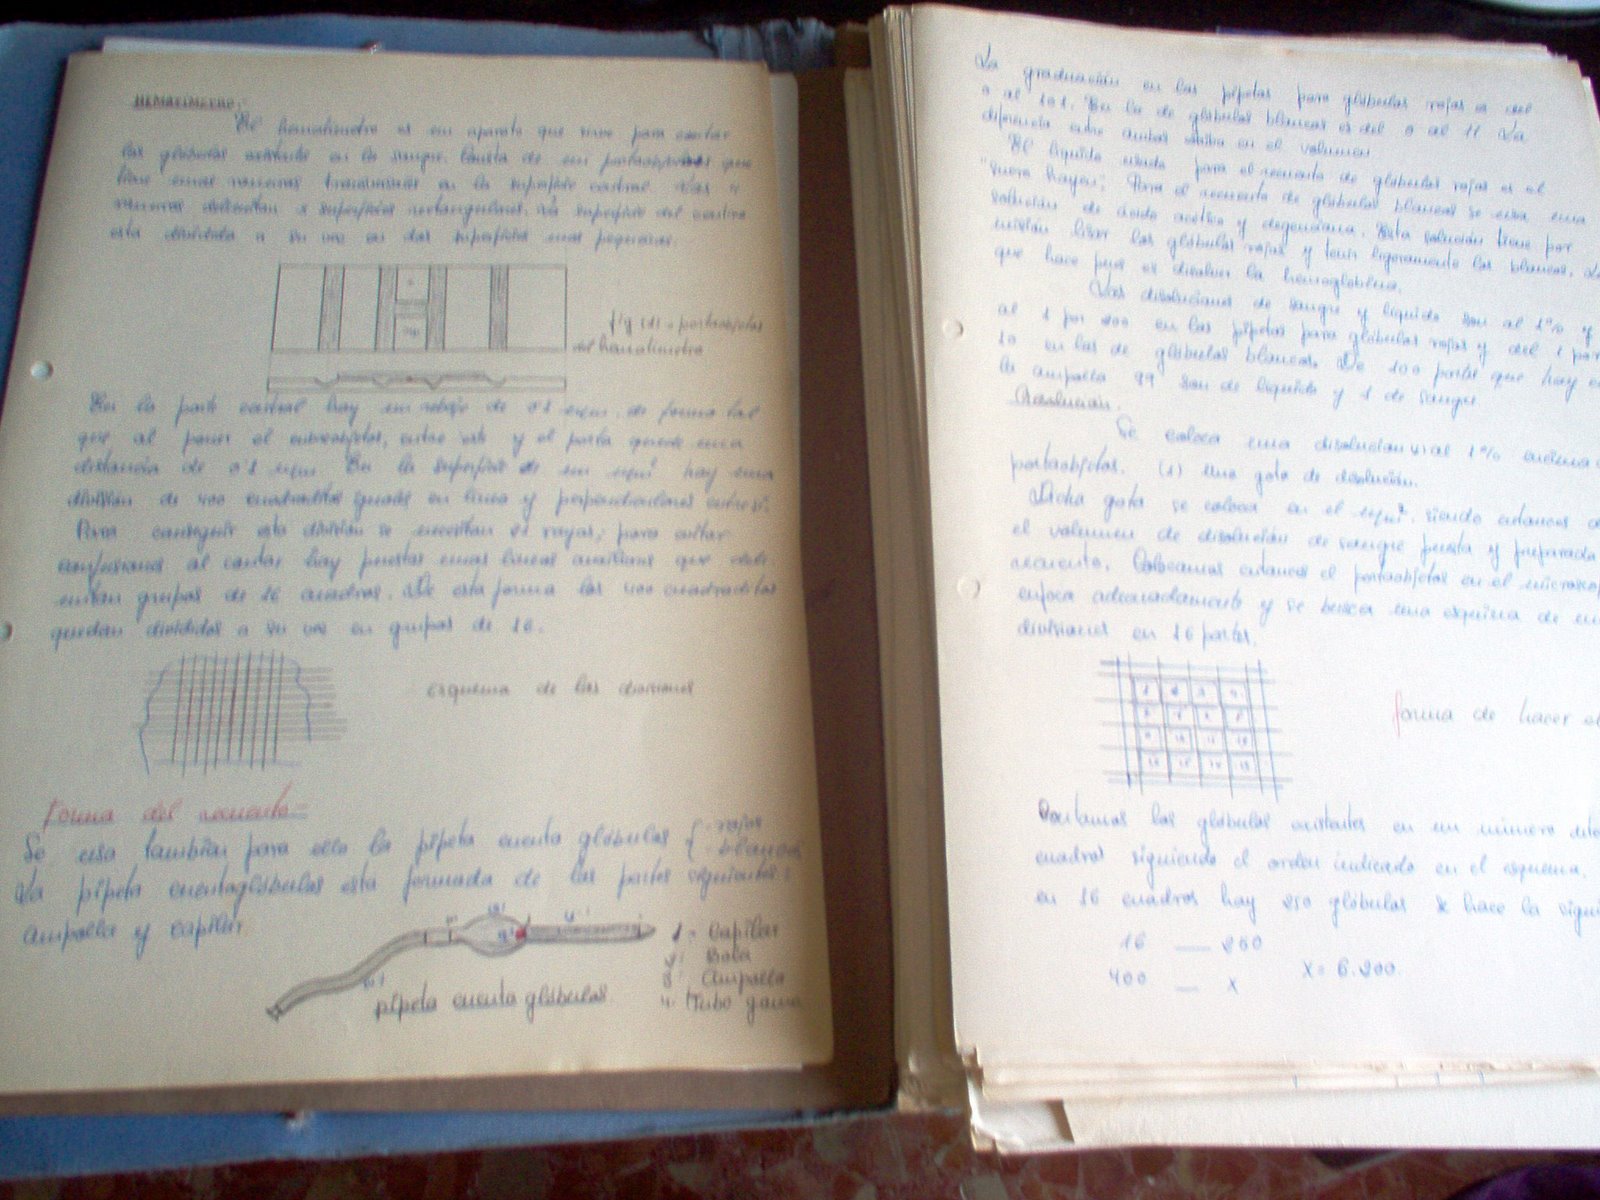 HEMATIMETRO.-
El hematimetro es un aparato que sirve para contar
los glóbulos existentes en la sangre. Consta de un portaobjetos que
tiene unas ranuras transversales en la superficie central. Las 4
ranuras delimitan 3 superficies rectangulares. La superficie del centro
esta dividida a su vez en dos superficies mas pequeñas.
fig (1) = portaobjetos
del hematimetro
En la parte central hay un rebaje de 0'1 mm. de forma tal
que al poner el cubreobjetos, entre este y el porta queda una
distancia de 0'1 mm. En la superficie de un mm² hay una
división de 400 cuadraditos iguales en linea y perpendiculares entre si.
Para conseguir esta división se necesitan 21 rayas; para evitar
confusiones al contar hay puestas unas lineas auxiliares que deli-
mitan grupos de 16 cuadros. De esta forma los 400 cuadraditos
quedan divididos a su vez en grupos de 16.
esquema de las divisiones
Forma del recuento=
Se usa tambien para ello la pipeta cuenta glóbulos { rojos
blancos
La pipeta cuentaglóbulos esta formada de las partes siguientes:
ampolla y capilar
1 = Capilar
2 Bola
3 Ampolla
4 Tubo goma
pipeta cuenta glóbulos.
La graduación en las pipetas para glóbulos rojos es del
0 al 101. En la de glóbulos blancos es del 0 al 11. La
diferencia entre ambas estriba en el volumen
El liquido usado para el recuento de glóbulos rojos es el
"suero hayen"; Para el recuento de glóbulos blancos se usa una
solución de ácido acetico y degenciana. Esta solución tiene por
misión lisar los glóbulos rojos y teñir ligeramente los blancos. Lo
que hace pues es disolver la hemoglobina.
Las disoluciones de sangre y liquido son al 1% y
al 1 por 200 en las pipetas para glóbulos rojos y del 1 por
10 en las de glóbulos blancos. De 100 partes que hay en
la ampolla 99 son de liquido y 1 de sangre
Resolución.
Se coloca una disolución al 1% encima
portaobjetos. (1) Una gota de disolución.
Dicha gota se coloca en el mm². siendo entonces
el volumen de disolución de sangre puesta y preparada
recuento. Colocamos entonces el portaobjetos en el
enfoca adecuadamente y se busca una esquina de
divisiones en 16 partes.
1 2 3 4
forma de hacer el
Contamos los glóbulos existentes en un número
cuadros siguiendo el orden indicado en el esquema.
en 16 cuadros hay 250 glóbulos se hace la
16 — 250
400 — X X = 6.200